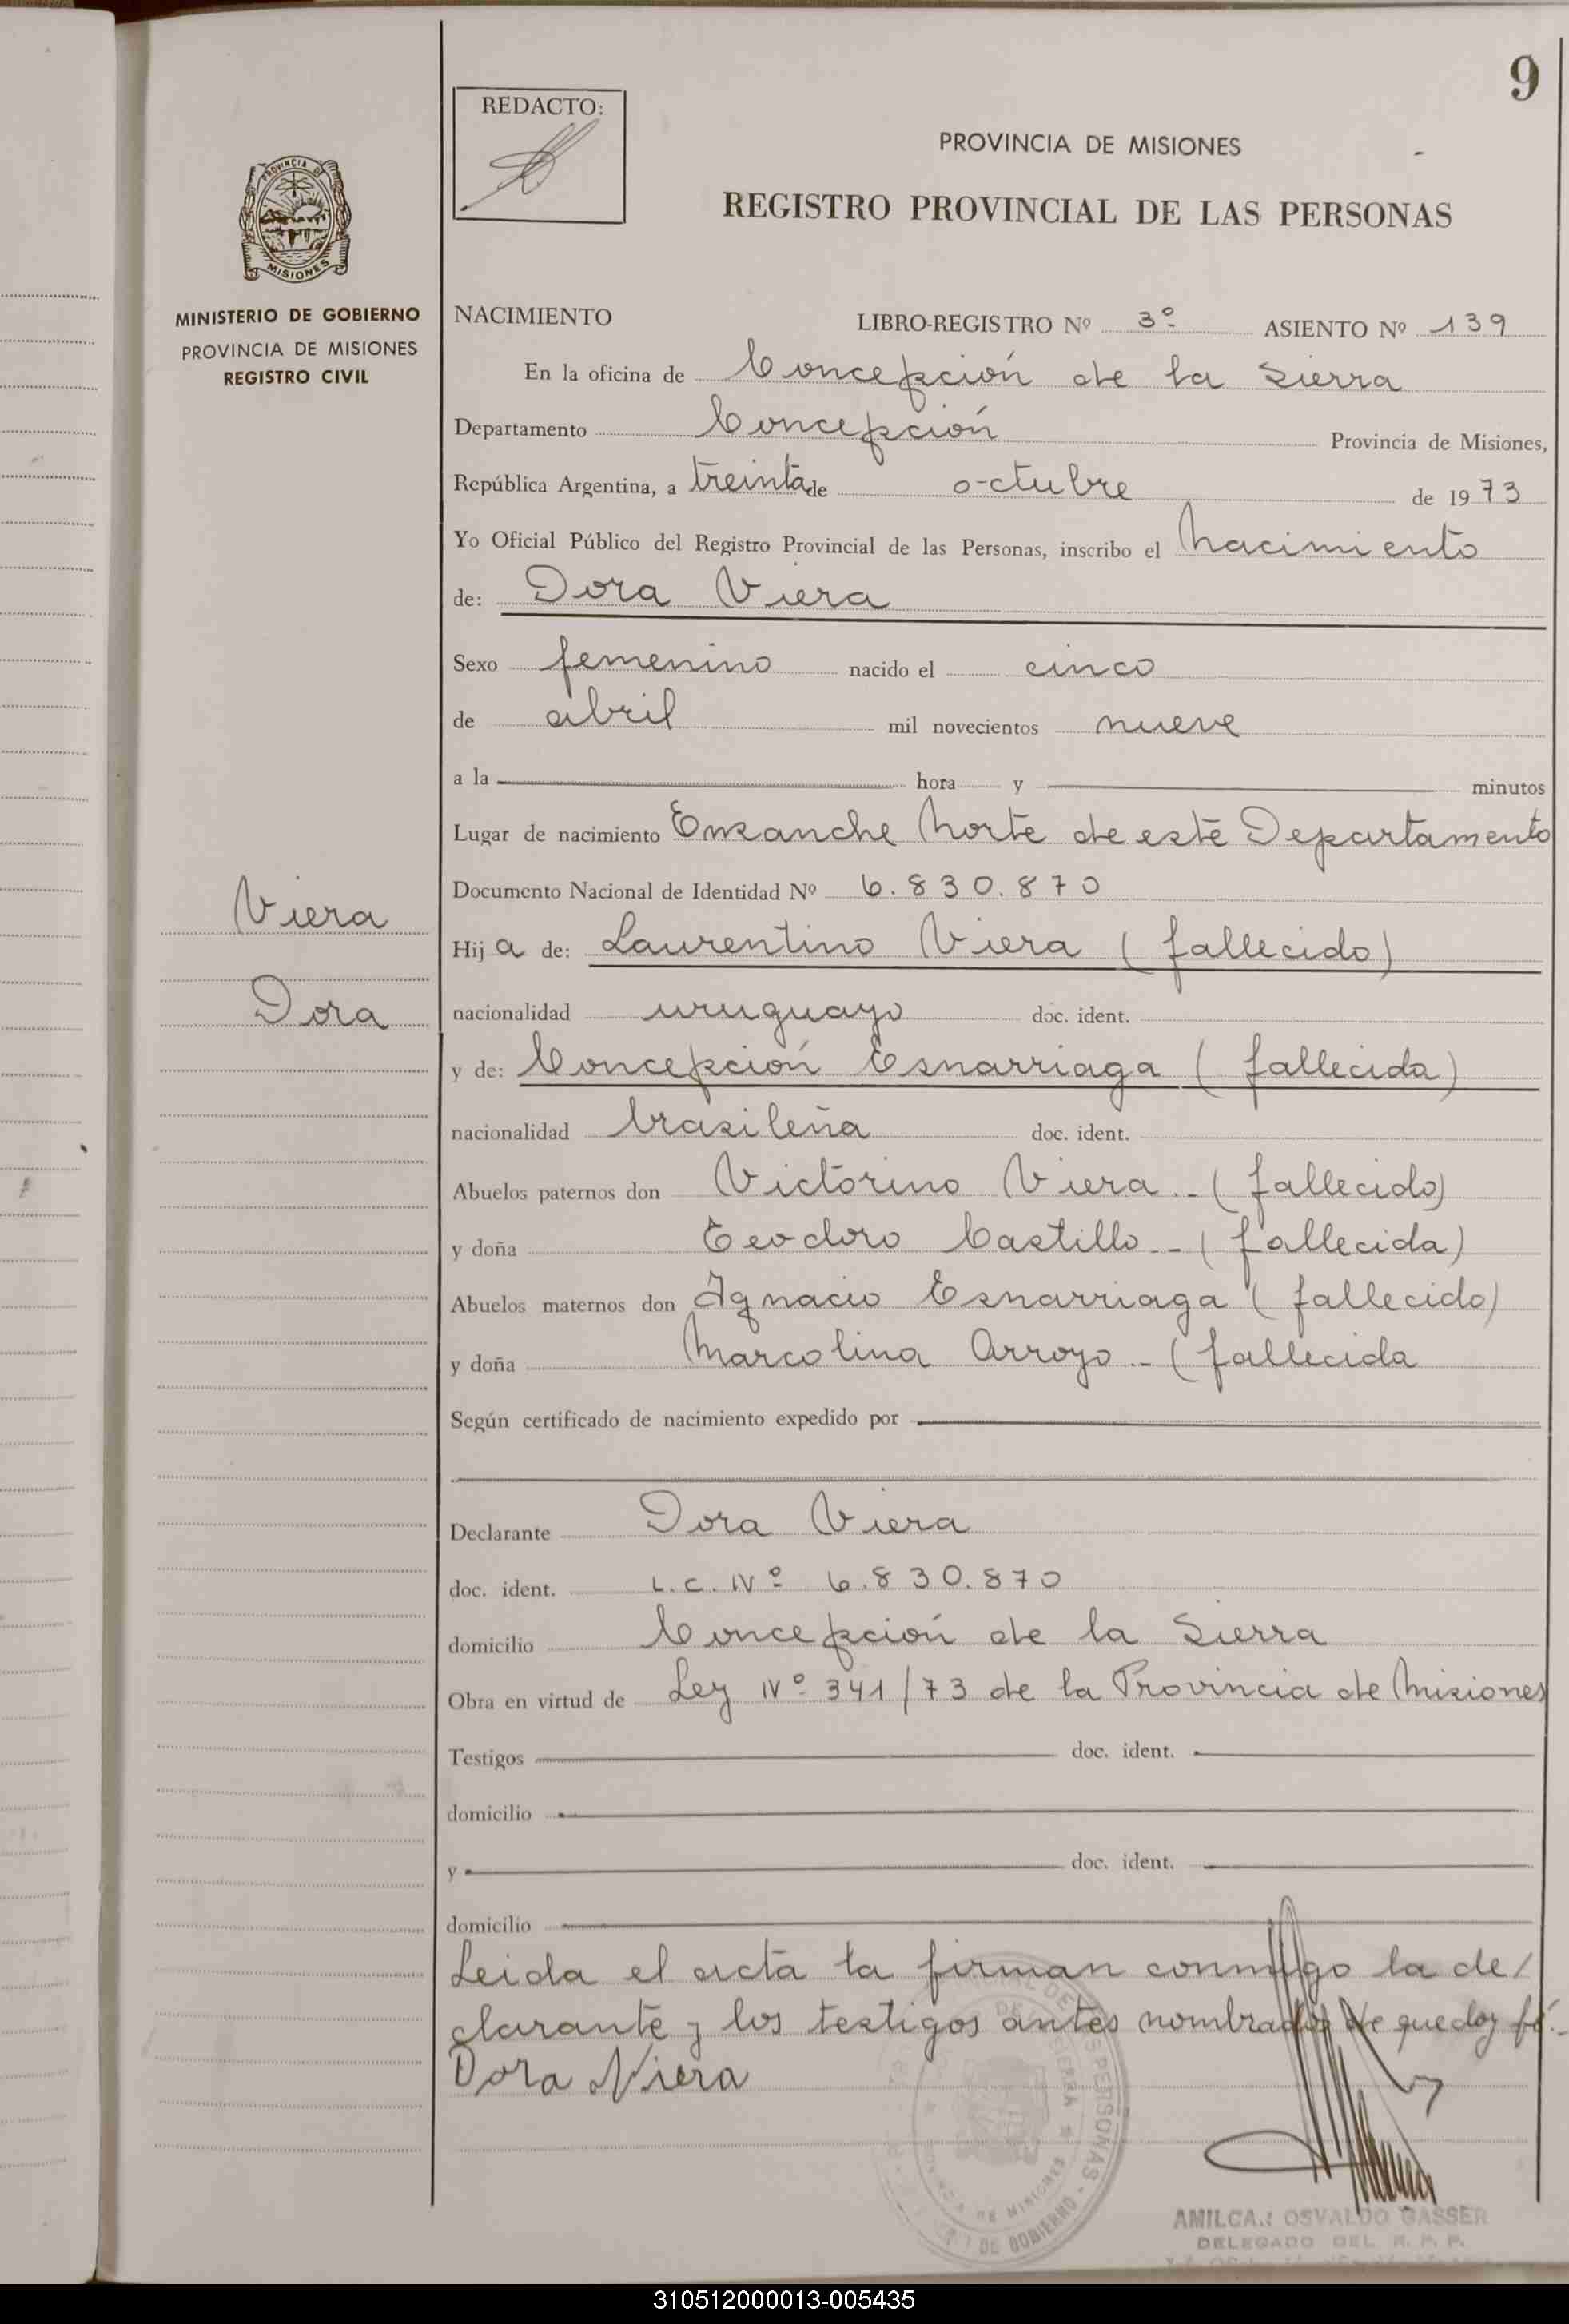 9
REDACTO:
PROVINCIA DE MISIONES
REGISTRO PROVINCIAL DE LAS PERSONAS
PROVINCIA DE
MISIONES
MINISTERIO DE GOBIERNO
PROVINCIA DE MISIONES
REGISTRO CIVIL
NACIMIENTO LIBRO-REGISTRO Nº 3º ASIENTO Nº 139
En la oficina de Concepción de la Sierra
Departamento Concepción Provincia de Misiones,
República Argentina, a treinta de octubre de 1973
Yo Oficial Público del Registro Provincial de las Personas, inscribo el Nacimiento
de: Dora Viera
Sexo femenino nacido el cinco
de abril mil novecientos nueve
a la hora y minutos
Lugar de nacimiento Ensanche Norte de este Departamento
Documento Nacional de Identidad Nº 6.830.870
Viera
Hija de: Laurentino Viera (fallecido)
Dora
nacionalidad uruguayo doc. ident.
y de: Concepción Esnarriaga (fallecida)
nacionalidad brasileña doc. ident.
Abuelos paternos don Victorino Viera - (fallecido)
y doña Teodoro Castillo - (fallecida)
Abuelos maternos don Ignacio Esnarriaga (fallecido)
y doña Marcolina Arroyo - (fallecida
Según certificado de nacimiento expedido por
Declarante Dora Viera
doc. ident. L.C. Nº 6.830.870
domicilio Concepción de la Sierra
Obra en virtud de Ley Nº 341/73 de la Provincia de Misiones
Testigos doc. ident.
domicilio
y doc. ident.
domicilio
Leida el acta la firman conmigo la de/
clarante y los testigos antes nombrados de que doy fé.-
Dora Viera
PERSONAS
DE MISIONES
DE GOBIERNO
OSVALDO GASSER
DELEGADO DEL R. P. P.
310512000013-005435